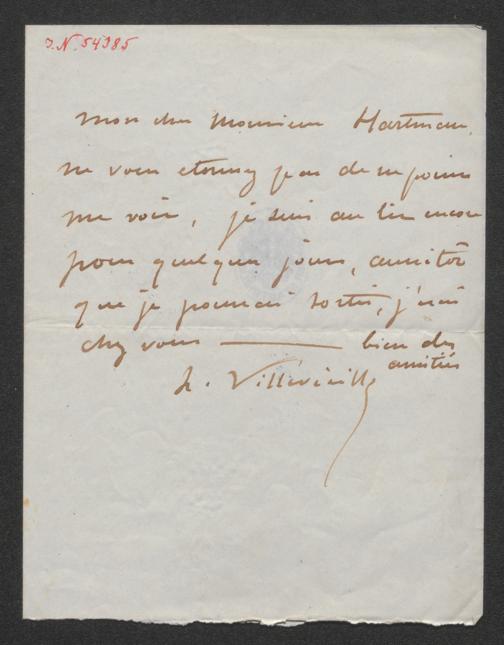 J.N. 54985
Mon cher Monsieur Hartman,
ne vous etonnez pas de ne point
me voir, je suis au lit encore
pour quelques jours, aussitôt
que je pourrai sortir, j'irai
chez vous — bien des
amitiés